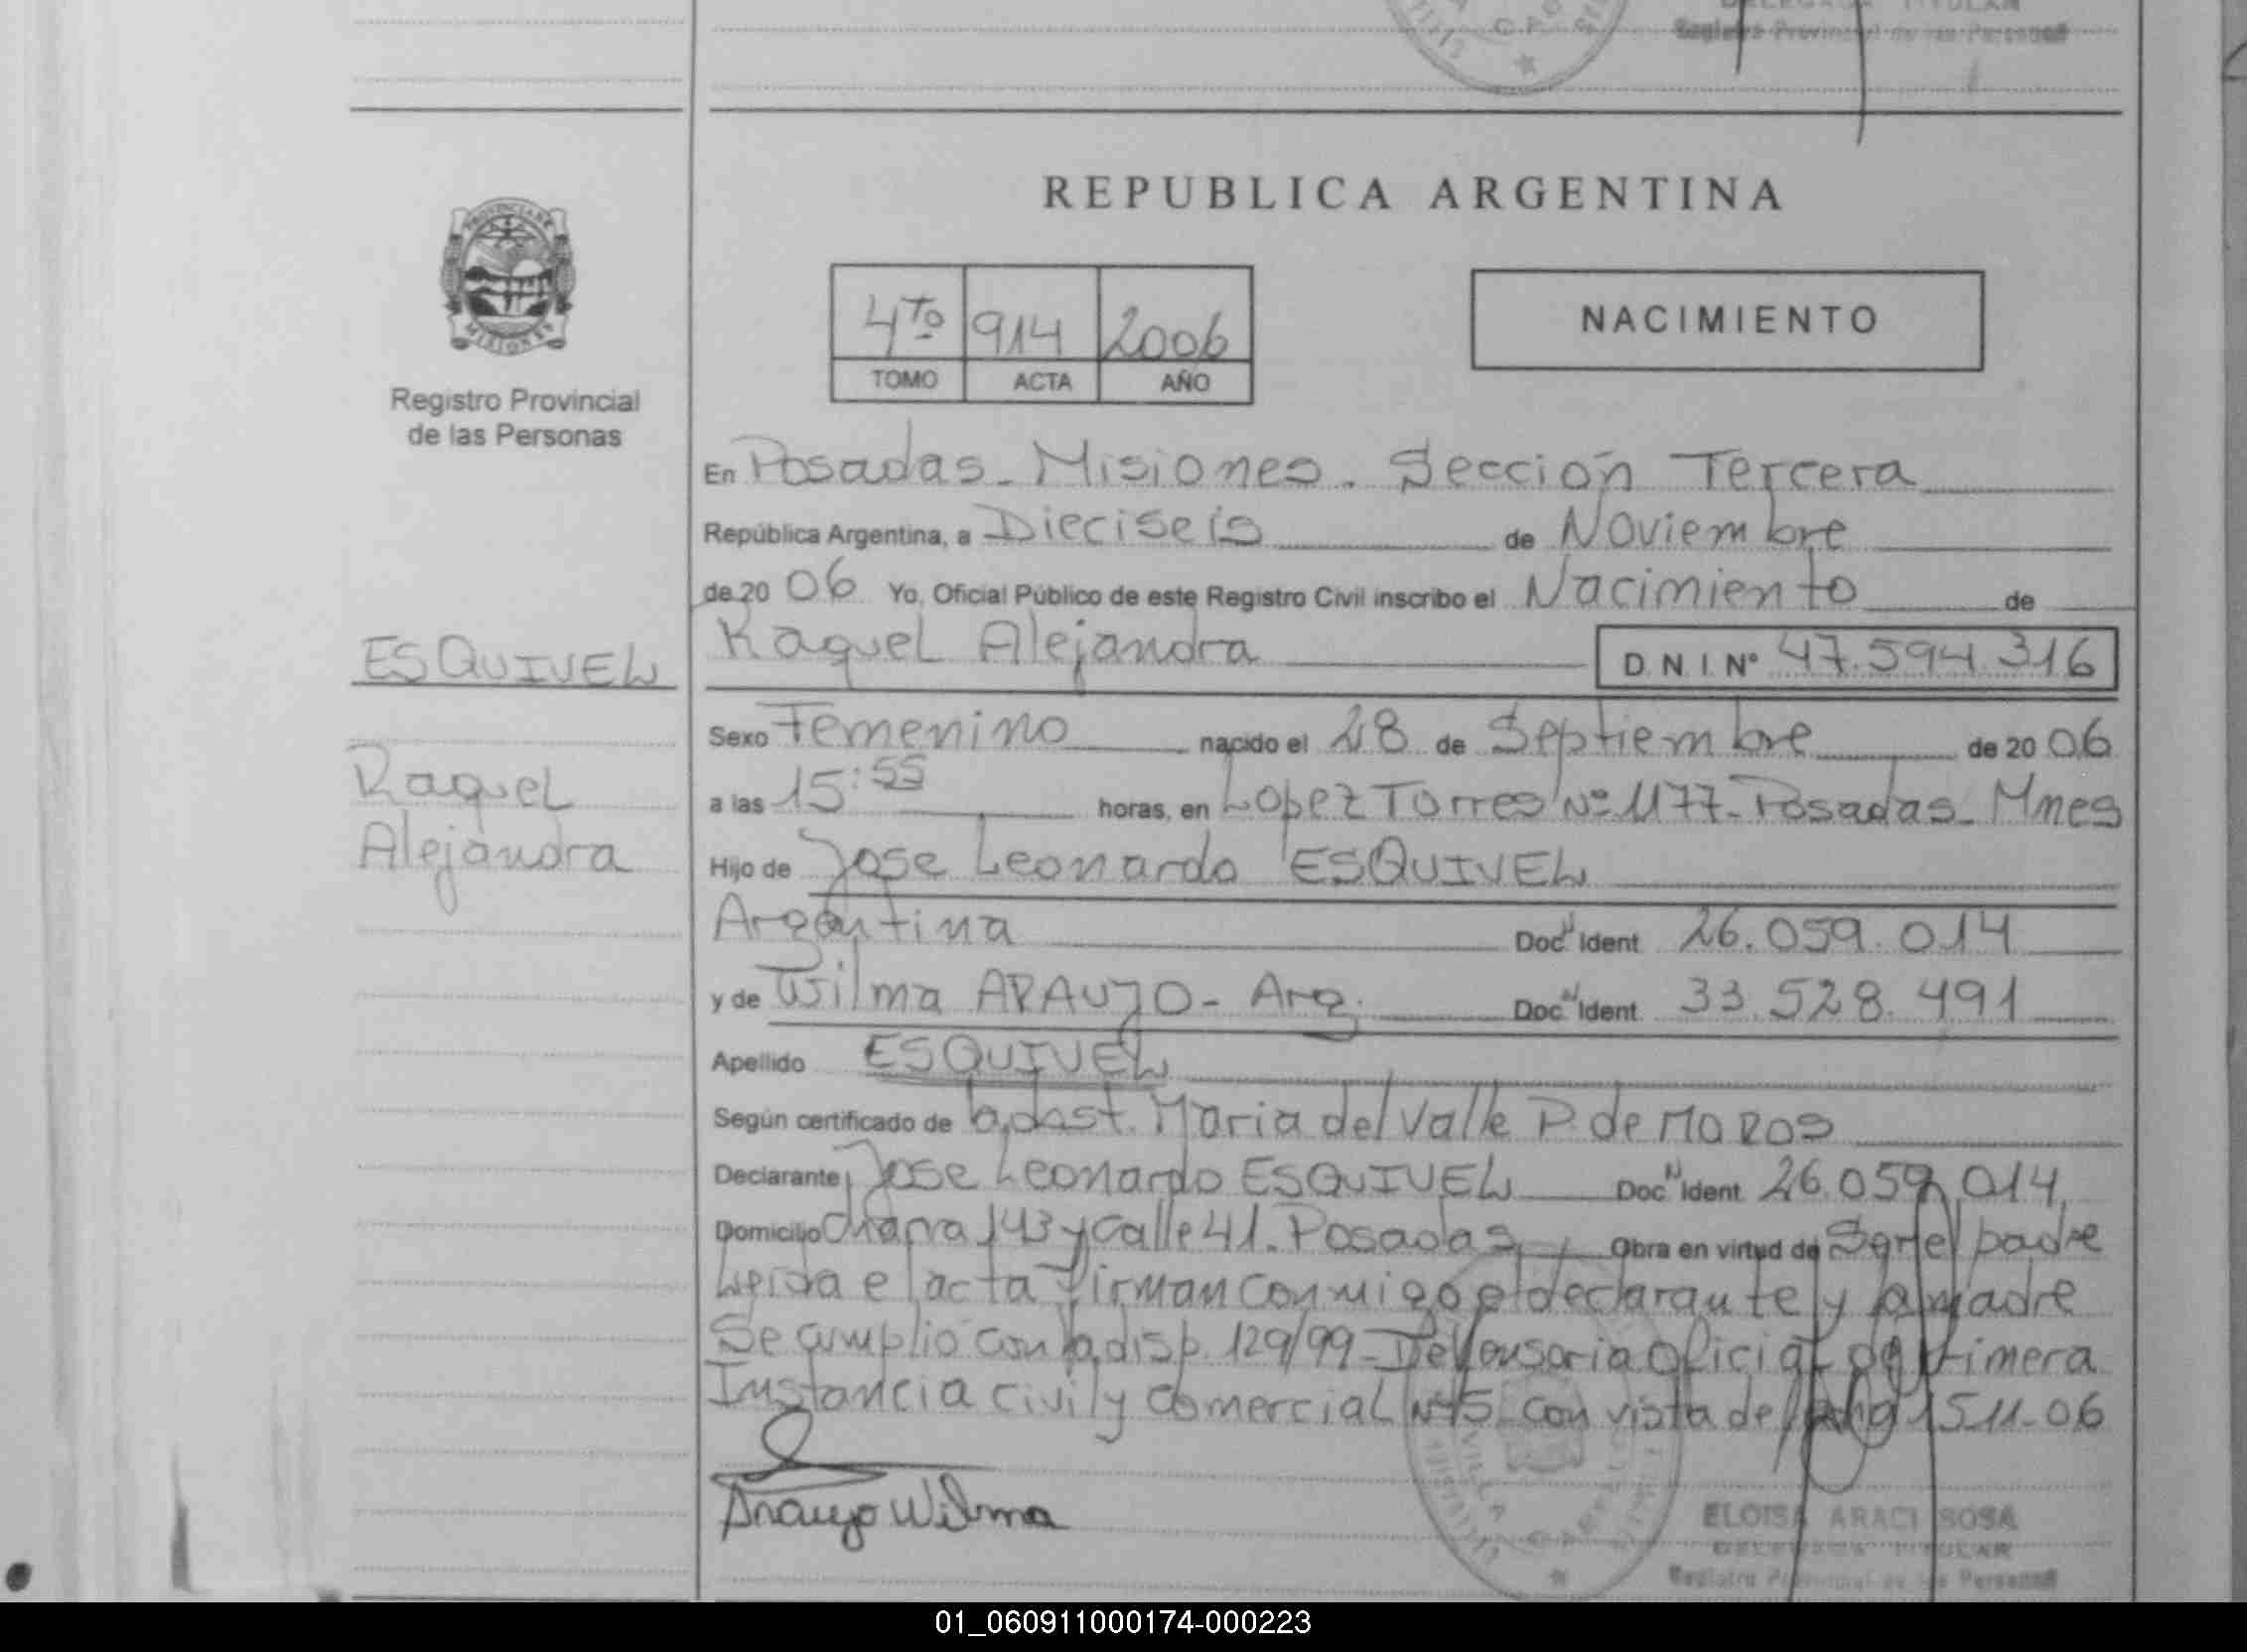 DELEGADA TITULAR
Registro Provincial de las Personas
REPUBLICA ARGENTINA
PROVINCIA DE
MISIONES
Registro Provincial
de las Personas
4to 914 2006
TOMO ACTA AÑO
NACIMIENTO
En Posadas - Misiones. Sección Tercera
República Argentina, a Dieciseis de Noviembre
de 20 06 Yo, Oficial Público de este Registro Civil inscribo el Nacimiento de
ESQUIVEL
Raquel Alejandra D.N.I. Nº 47.594.316
Sexo Femenino nacido el 28 de Septiembre de 20 06
Raquel
Alejandra
a las 15:55 horas, en Lopez Torres Nº 1177 - Posadas - Mnes
Hijo de Jose Leonardo ESQUIVEL
Argentina Doc. Ident. 26.059.014
y de Wilma ARAUJO - Arg. Doc. Ident. 33.528.491
Apellido ESQUIVEL
Según certificado de Maria del Valle P. de
Declarante Jose Leonardo ESQUIVEL Doc. Ident. 26.059.014
Domicilio Chacra 143 y Calle 41. Posadas Obra en virtud de Ser el padre
Leida el acta firman conmigo el declarante y la madre
Se cumplio con la disp. 129/99 - Defensoria Oficial de Primera
Instancia Civil y Comercial Nº 5 con vista de fecha 15-11-06
Araujo Wilma
ELOISA ARACI SOSA
DELEGADA TITULAR
Registro Provincial de las Personas
01_060911000174-000223